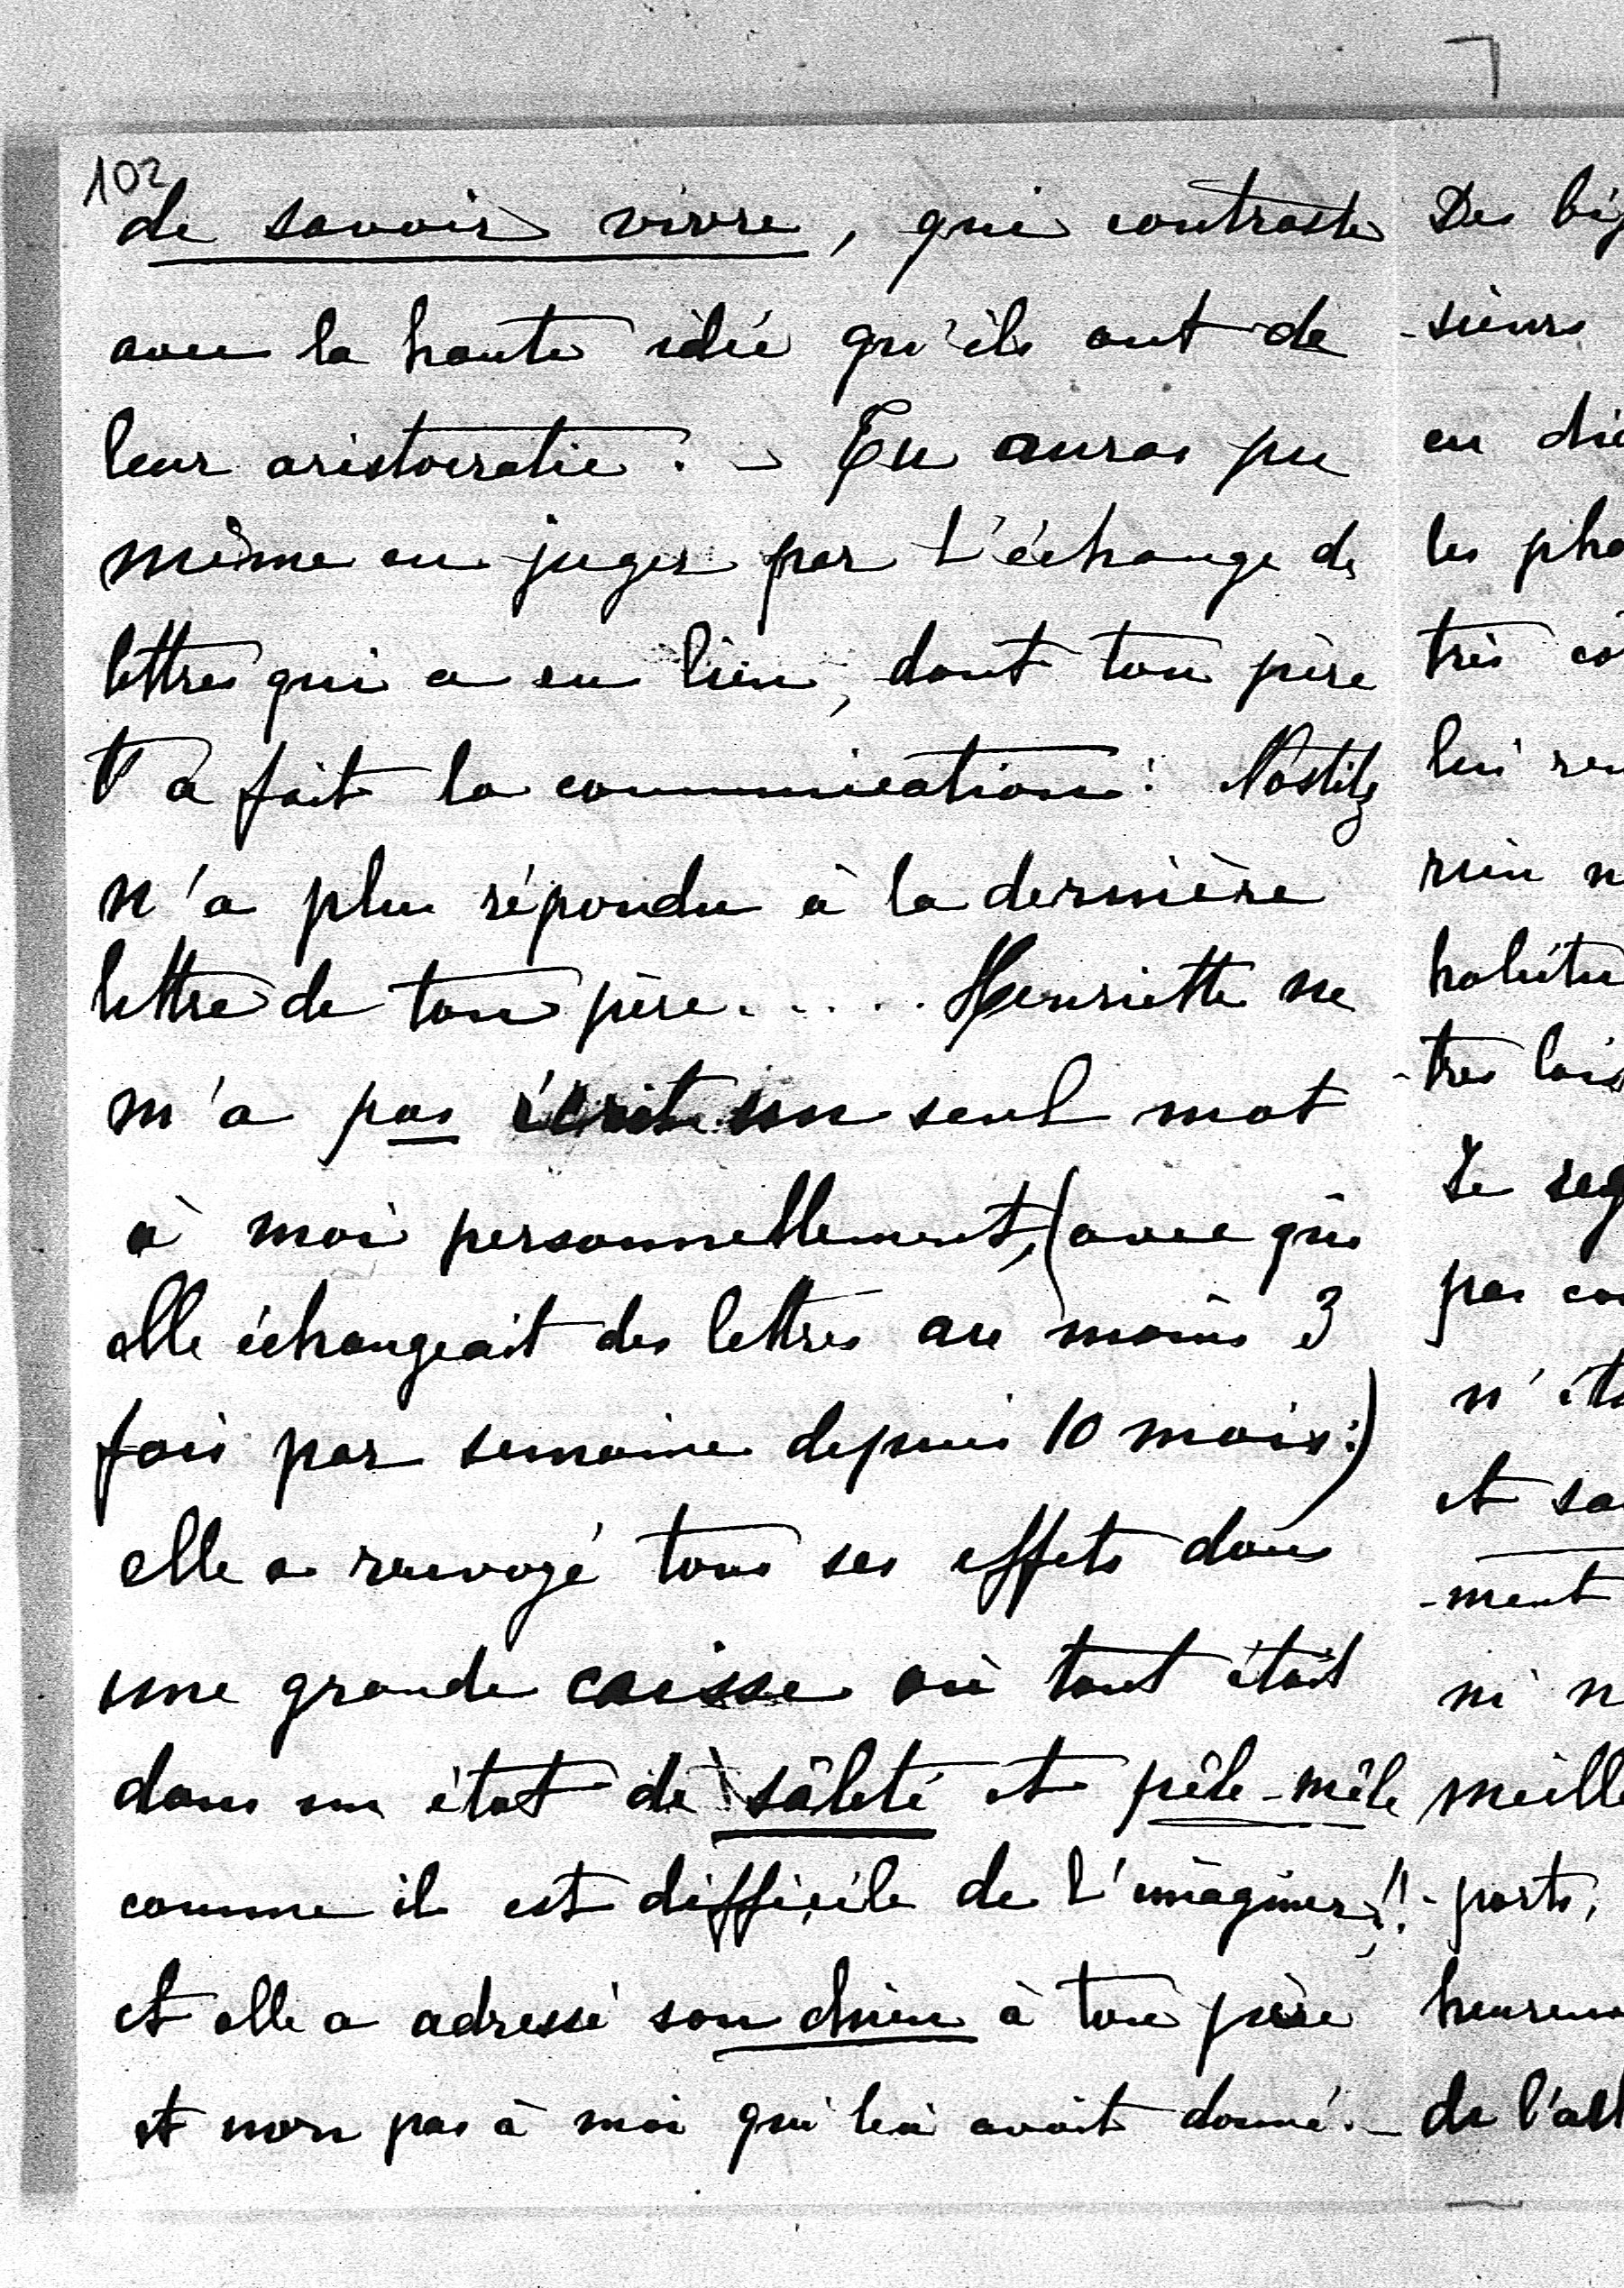 102
de savoir vivre, qui contraste
avec la haute idée qu'ils ont de
leur aristocratie. - Tu auras pu
même en juger par l'échange de
lettres qui a eu lieu, dont ton père
t'a fait la communication: Nostitz
n'a plus répondu à la dernière
lettre de ton père..... Henriette ne
m'a pas écrit un seul mot
à moi personnellement, (avec qui
elle échangeait des lettres au moins 3
fois par semaine depuis 10 mois:)
elle a renvoyé tous ses effets dans
une grande caisse où tout était
dans un état de sâleté et pêle-mêle
comme il est difficile de l'imaginer!!
et elle a adressé son chien à ton père
et non pas à moi qui lui avait donné. -
Des
-sieurs
en
les
très
lui
rien
-tres
Je
pas
et
-ment
ni
-ports,
de